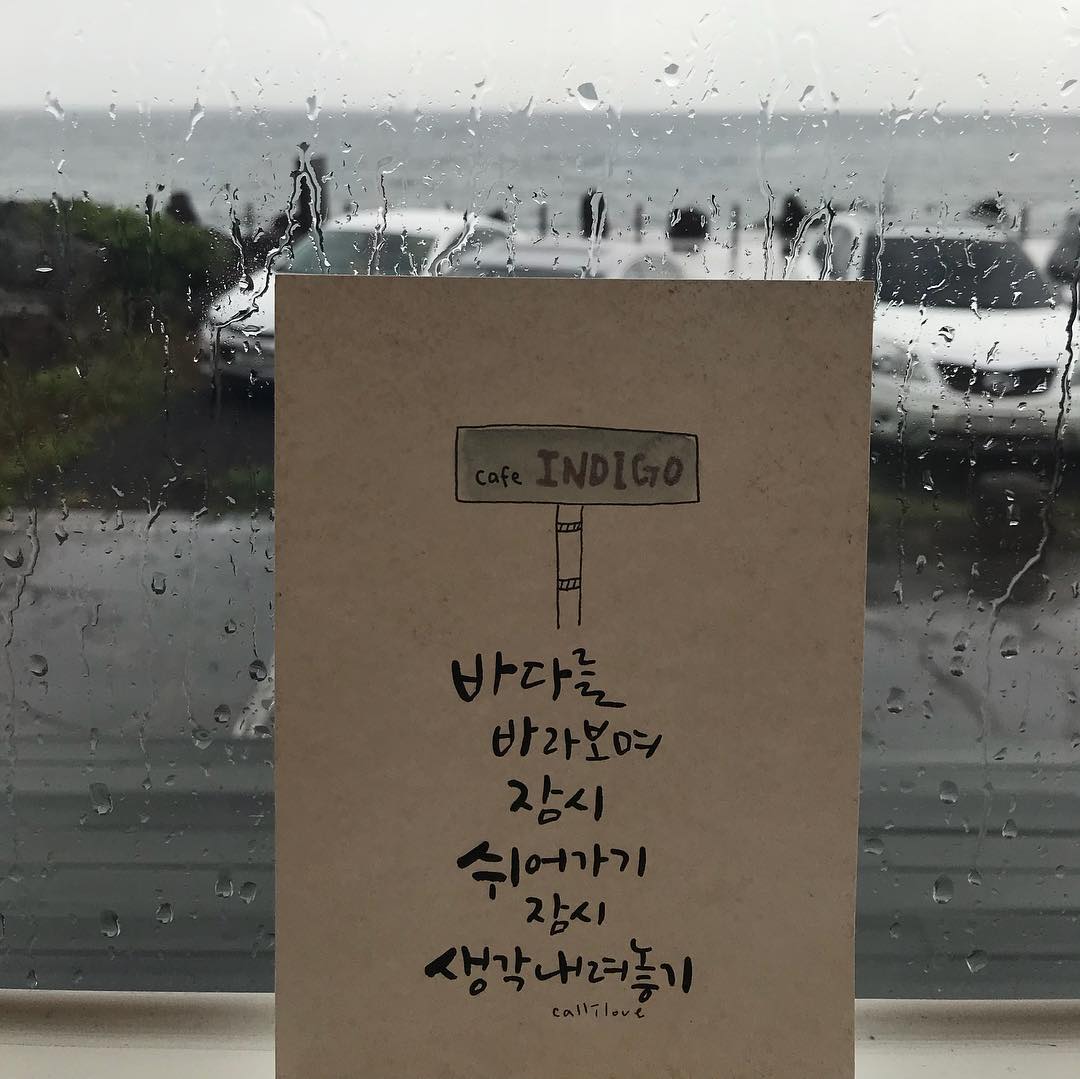 cafe INDIGO
바다를
바라보며
잠시
쉬어가기
잠시
생각내려놓기
callilove